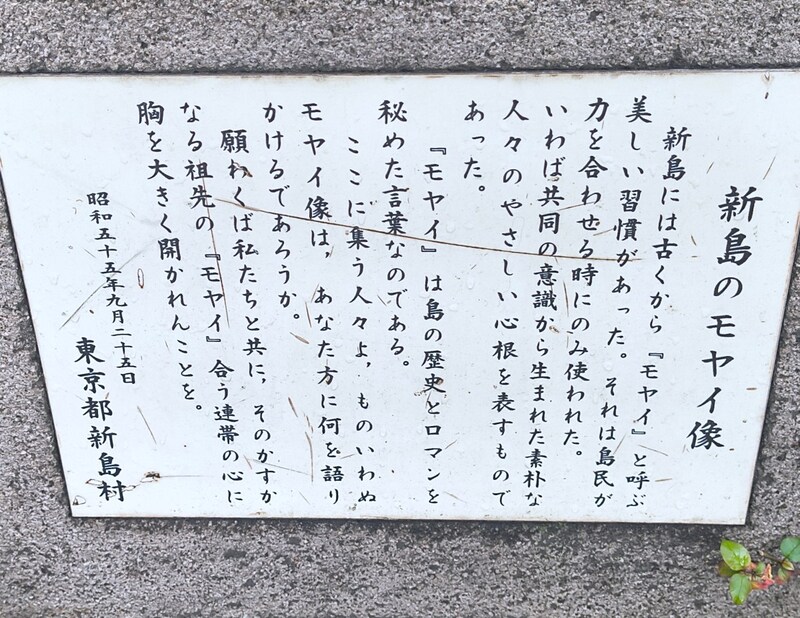 新島のモヤイ像
新島には古くから『モヤイ』と呼ぶ
美しい習慣があった。それは島民が
力を合わせる時にのみ使われた。
いわば共同の意識から生まれた素朴な
人々のやさしい心根を表すもので
あった。
『モヤイ』は島の歴史とロマンを
秘めた言葉なのである。
ここに集う人々よ，ものいわぬ
モヤイ像は，あなた方に何を語り
かけるであろうか。
願わくば私たちと共に，そのかすか
なる祖先の『モヤイ』合う連帯の心に
胸を大きく開かれんことを。
昭和五十五年九月二十五日
東京都新島村